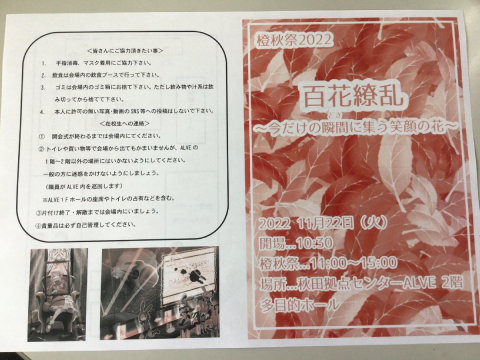 ＜皆さんにご協力頂きたい事＞
1. 手指消毒、マスク着用にご協力下さい。
2. 飲食は会場内の飲食ブースで行って下さい。
3. ゴミは会場内のゴミ箱にお捨て下さい。ただし飲み物や汁系は飲
み切ってから捨てて下さい。
4. 本人に許可の無い写真・動画のSNS等への投稿はしないで下さい。
＜在校生への連絡＞
① 開会式が終わるまでは会場内にてください。
② トイレや買い物等で会場から出てもかまいませんが、ALVEの
1階～2階以外の場所にはいかないようにしてください。
一般の方に迷惑をかけないようにしましょう。
（職員がALVE内を巡回します）
※ALVE1Fホールの座席やトイレの占有などを含む。
③片付け終了・解散までは会場内にいましょう。
④貴重品は必ず自己管理してください。
橙秋祭2022
百花繚乱
～今だけの瞬間に集う笑顔の花～
2022 11月22日（火）
開場…10:30
橙秋祭…11:00～15:00
場所…秋田拠点センターALVE 2階
多目的ホール